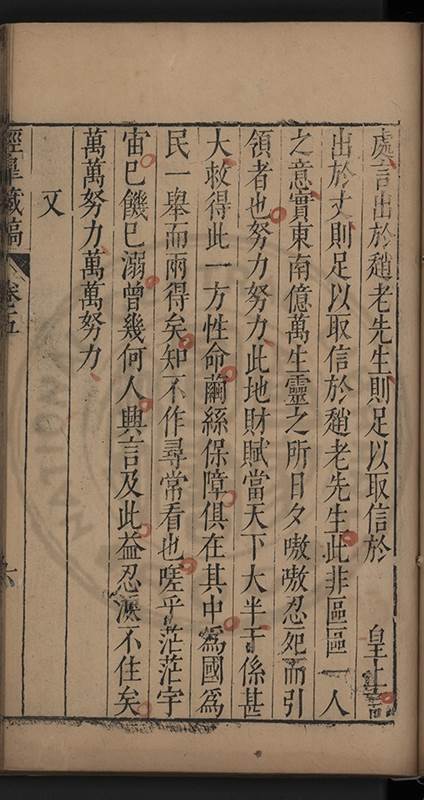 處言出於趙老先生則足以取信於　皇上言
出於丈則足以取信於趙老先生此非區區一人
之意實東南億萬生靈之所日夕嗷嗷忍死而引
領者也努力努力此地財賦當天下大半干係甚
大救得此一方性命繭絲保障俱在其中爲國爲
民一舉而兩得矣知不作尋常看也嗟乎茫茫宇
宙已饑已溺曾幾何人興言及此益忍淚不住矣
萬萬努力萬萬努力
又
涇臯藏稿
卷五
六